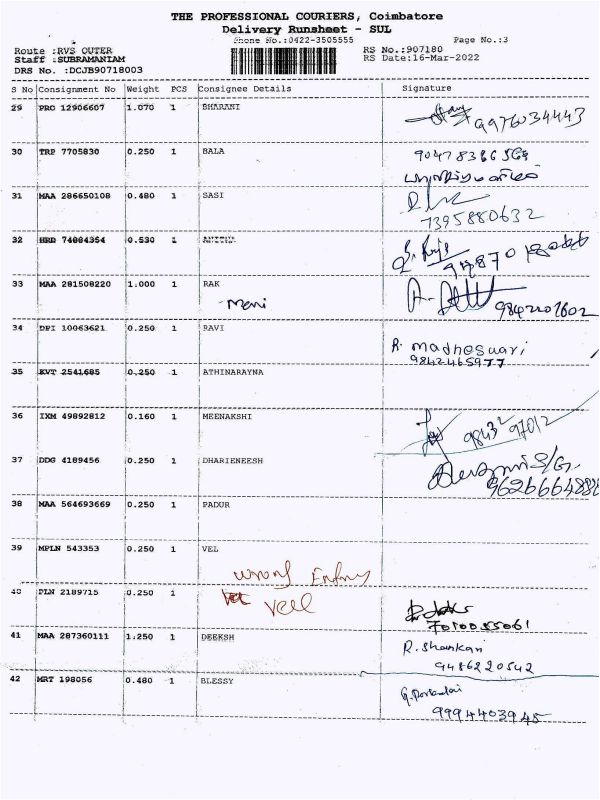 THE PROFESSIONAL COURIERS, Coimbatore
Delivery Runsheet - SUL
Phone No.:0422-3505555 Page No.:3
Route :RVS OUTER RS No.:907180
Staff :SUBRAMANIAM RS Date:16-Mar-2022
DRS No. :DCJB90718003
S No Consignment No Weight PCS Consignee Details Signature
29 PRO 12906607 1.070 1 BHARANI
9976034443
30 TRP 7705830 0.250 1 BALA
31 MAA 286650108 0.480 1 SASI
7395880632
32 HRD 74884354 0.530 1
33 MAA 281508220 1.000 1 RAK
Meni 9842201602
34 DPI 10063621 0.250 1 RAVI
R. Madheswari
9842465977
35 KVT 2541685 0.250 1 ATHINARAYNA
36 IXM 49892812 0.160 1 MEENAKSHI
9843297012
37 DDG 4189456 0.250 1 DHARIENEESH
38 MAA 564693669 0.250 1 PADUR
39 MPLN 543353 0.250 1 VEL
wrong Entry
40 DLN 2189715 0.250 1
Vell
7010055061
41 MAA 287360111 1.250 1 DEEKSH
R. Shankari
9486220542
42 MRT 198056 0.480 1 BLESSY
9994403945